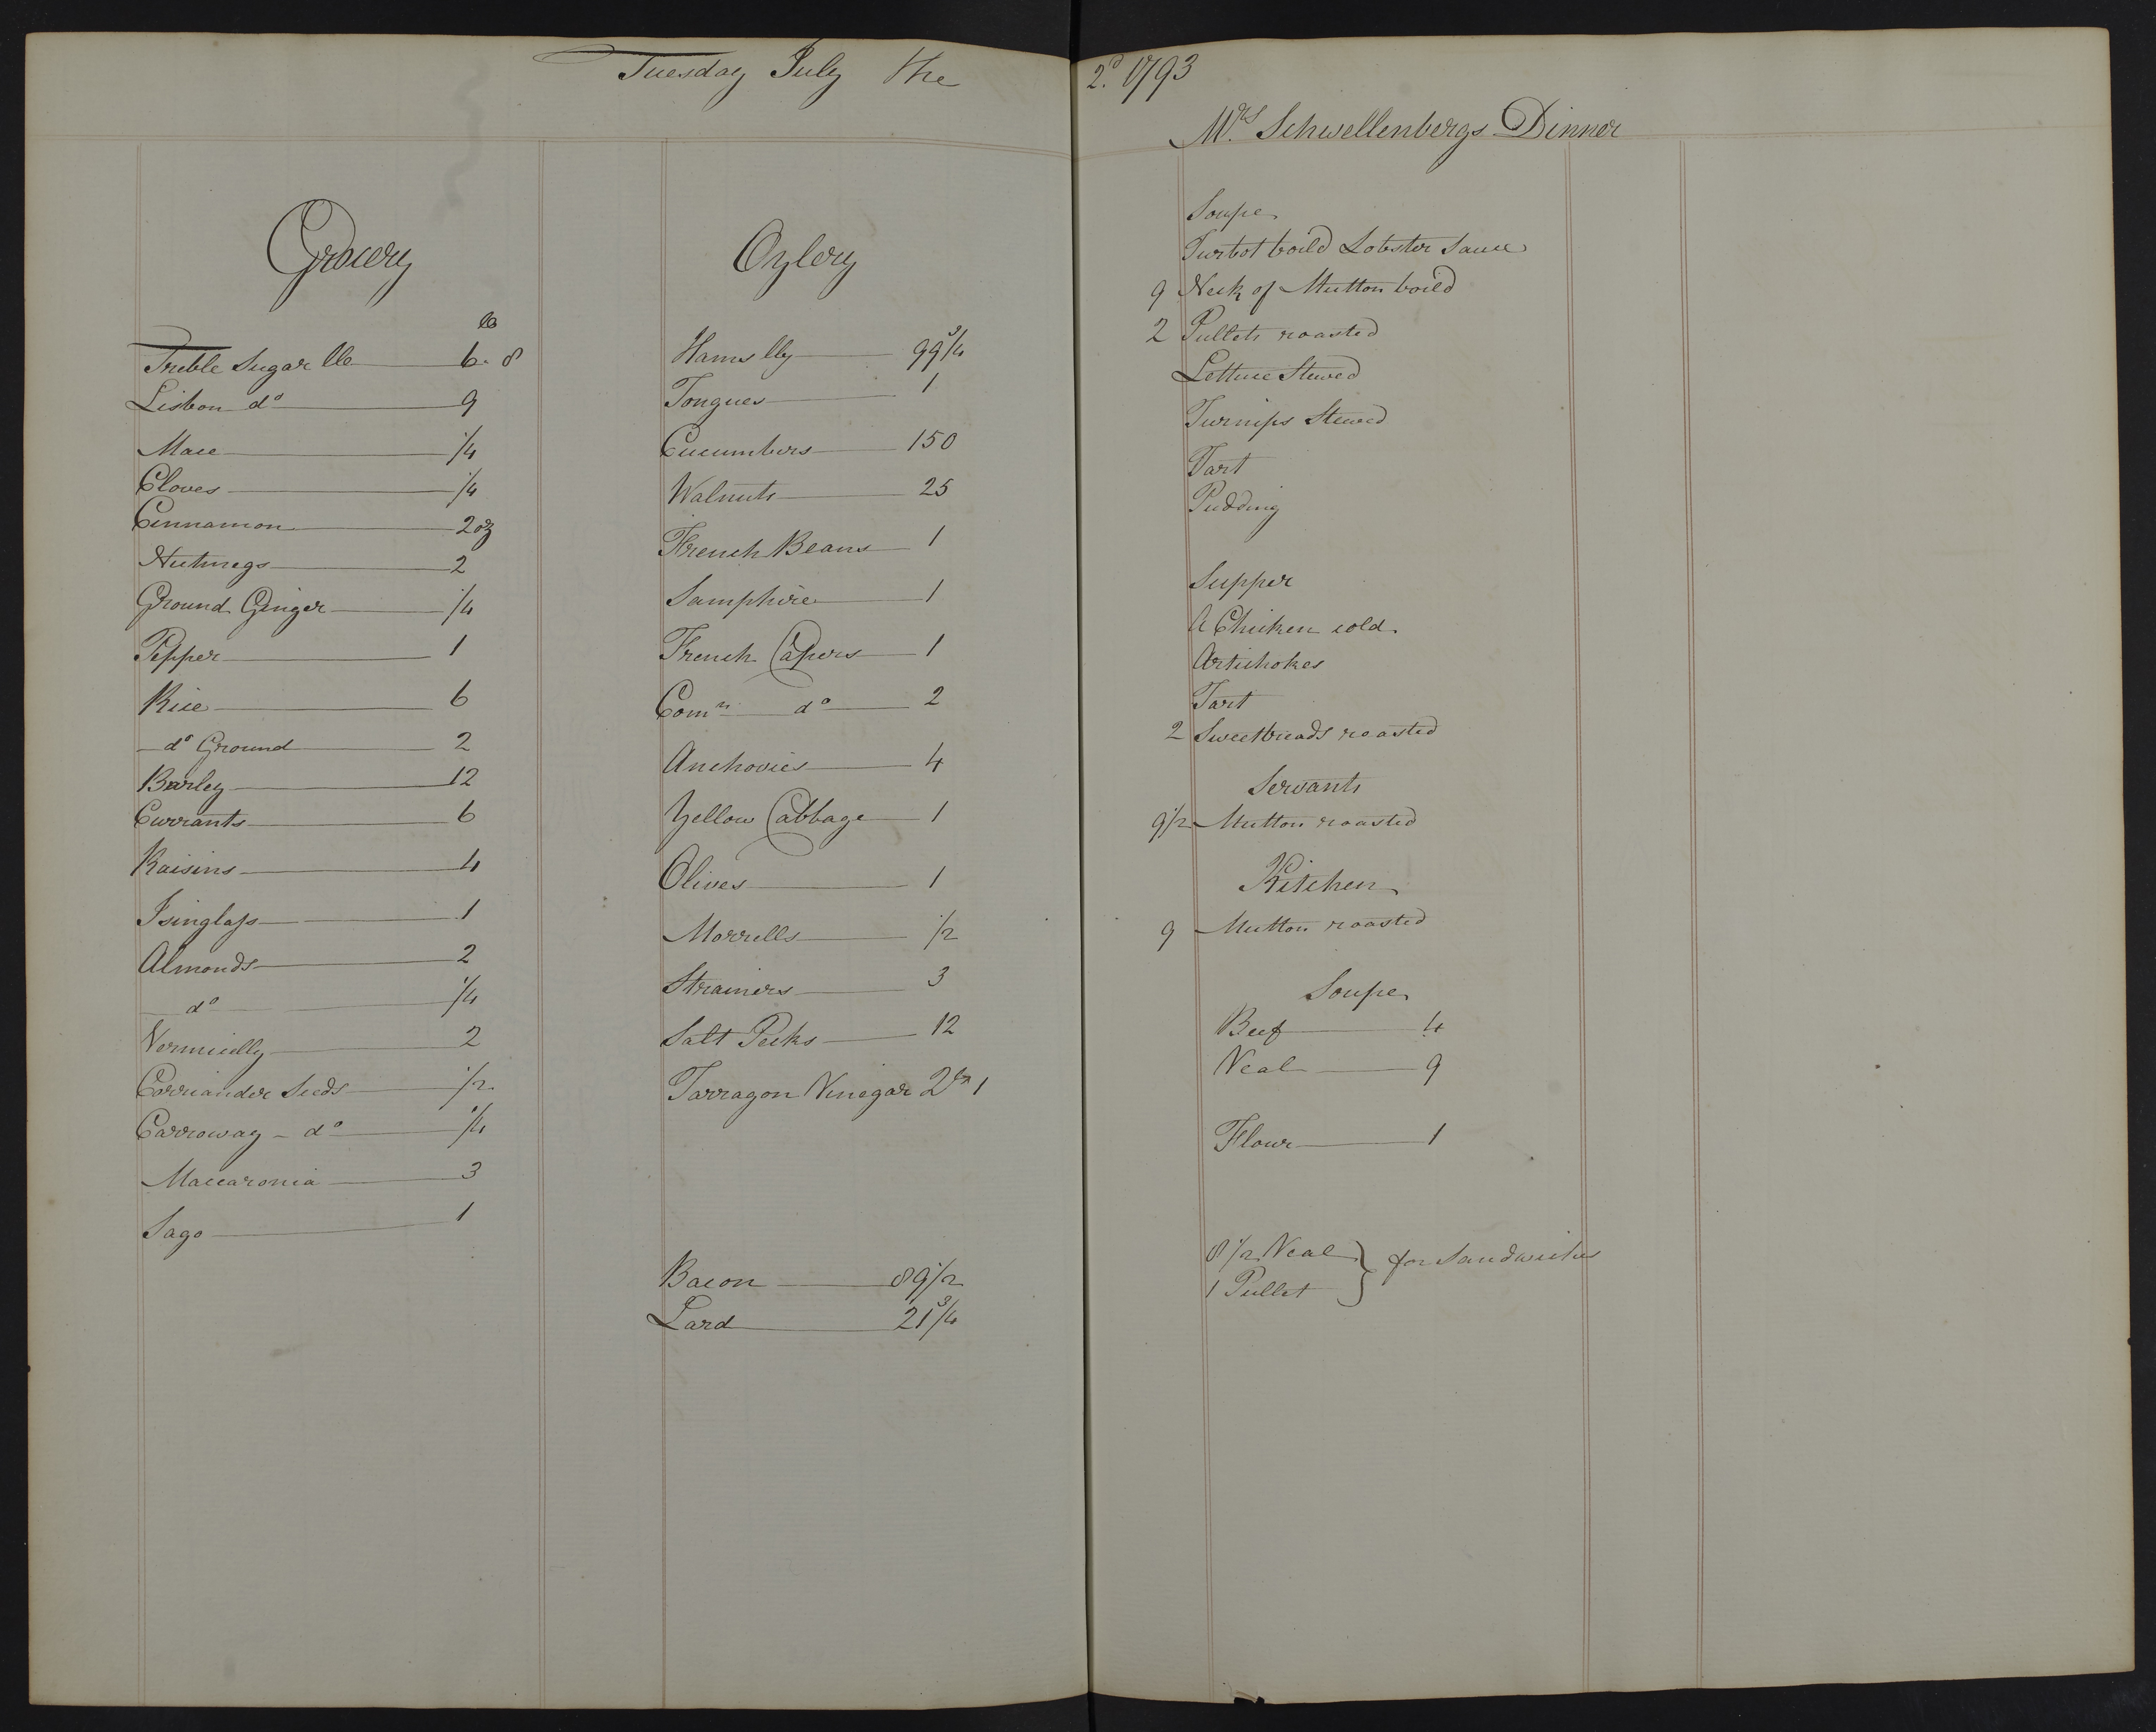 Tuesday July the 2d. 1793
Grocery
lb
Treble Sugar llb 6. 8
Lisbon do 9
Mace 1/4
Cloves 1/4
Cinnamon 2oz
Nutmegs 2
Ground Ginger 1/4
Pepper 1
Rice 6
do Ground 2
Barley 12
Currants 6
Raisins 4
Isinglass 1
Almonds 2
do 1/4
Vermicelly 2
Corriander Seeds 1/2
Carroway do 1/4
Maccaronia 3
Sago 1
Oylery
Hams lly 99 3/4
Tongues 1
Cucumbers 150
Walnuts 25
French Beans 1
Samphire 1
French Capers 1
Comn do 2
Anchovies 4
Yellow Cabbage 1
Olives 1
Morrells 1/2
Strainers 3
Salt Pecks 12
Tarragon Vinegar 1
Bacon 89 1/2
Lard 21 3/4
Mrs Schwellenbergs Dinner
Soupe
Turbot boild Lobster Sauce
9 Neck of Mutton boild
2 Pullets roasted
Lettuce Stewed
Turnips Stewed
Tart
Pudding
Supper
A Chicken cold
Artichokes
Tart
2 Sweetbreads roasted
Servants
9 1/2 Mutton roasted
Kitchen
9 Mutton roasted
Soupe
Beef 4
Veal 9
Flour 1
8 1/2 Veal
1 Pullet } for Sandwiches